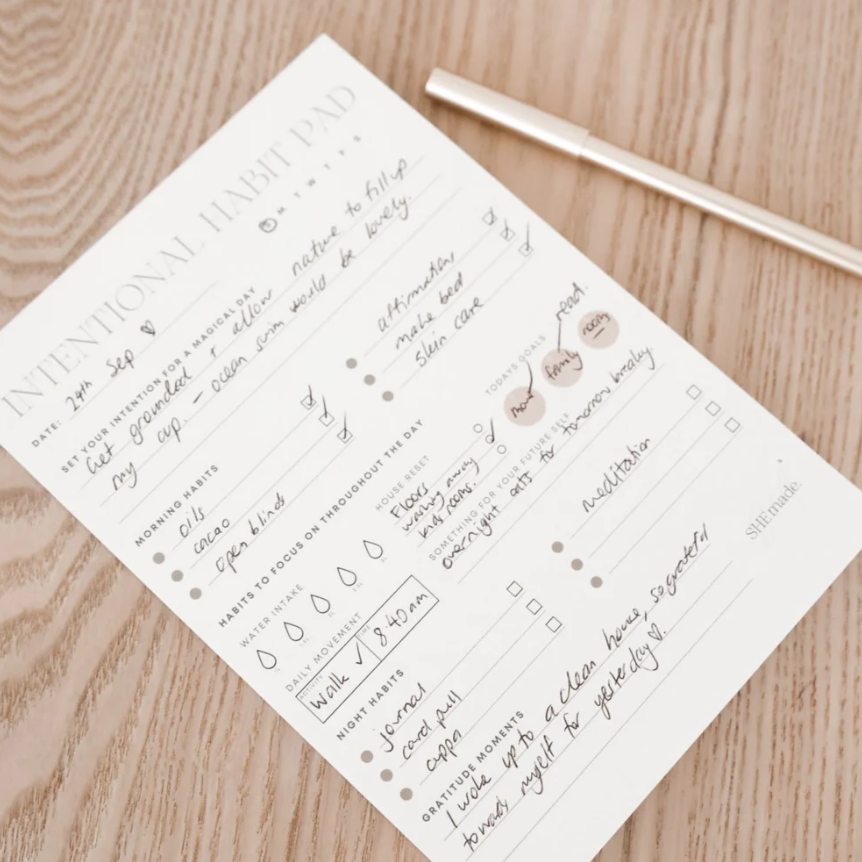 INTENTIONAL HABIT PAD
S M T W T F S
DATE: 24th Sep ♡
SET YOUR INTENTION FOR A MAGICAL DAY
Get grounded + allow nature to fill up
my cup. - ocean swim would be lovely.
MORNING HABITS
oils
cacao
open blinds
affirmation
make bed
skin care
HABITS TO FOCUS ON THROUGHOUT THE DAY
WATER INTAKE
HOUSE RESET
Floors
washing away
kids rooms.
TODAYS GOALS
move
family
read.
DAILY MOVEMENT
walk ✓
8:40am
SOMETHING FOR YOUR FUTURE SELF
overnight oats for tomorrow breaky.
NIGHT HABITS
journal
card pull
cuppa
meditation
GRATITUDE MOMENTS
I woke up to a clean house, so grateful
towards myself for yesterday ♡.
SHEmade.